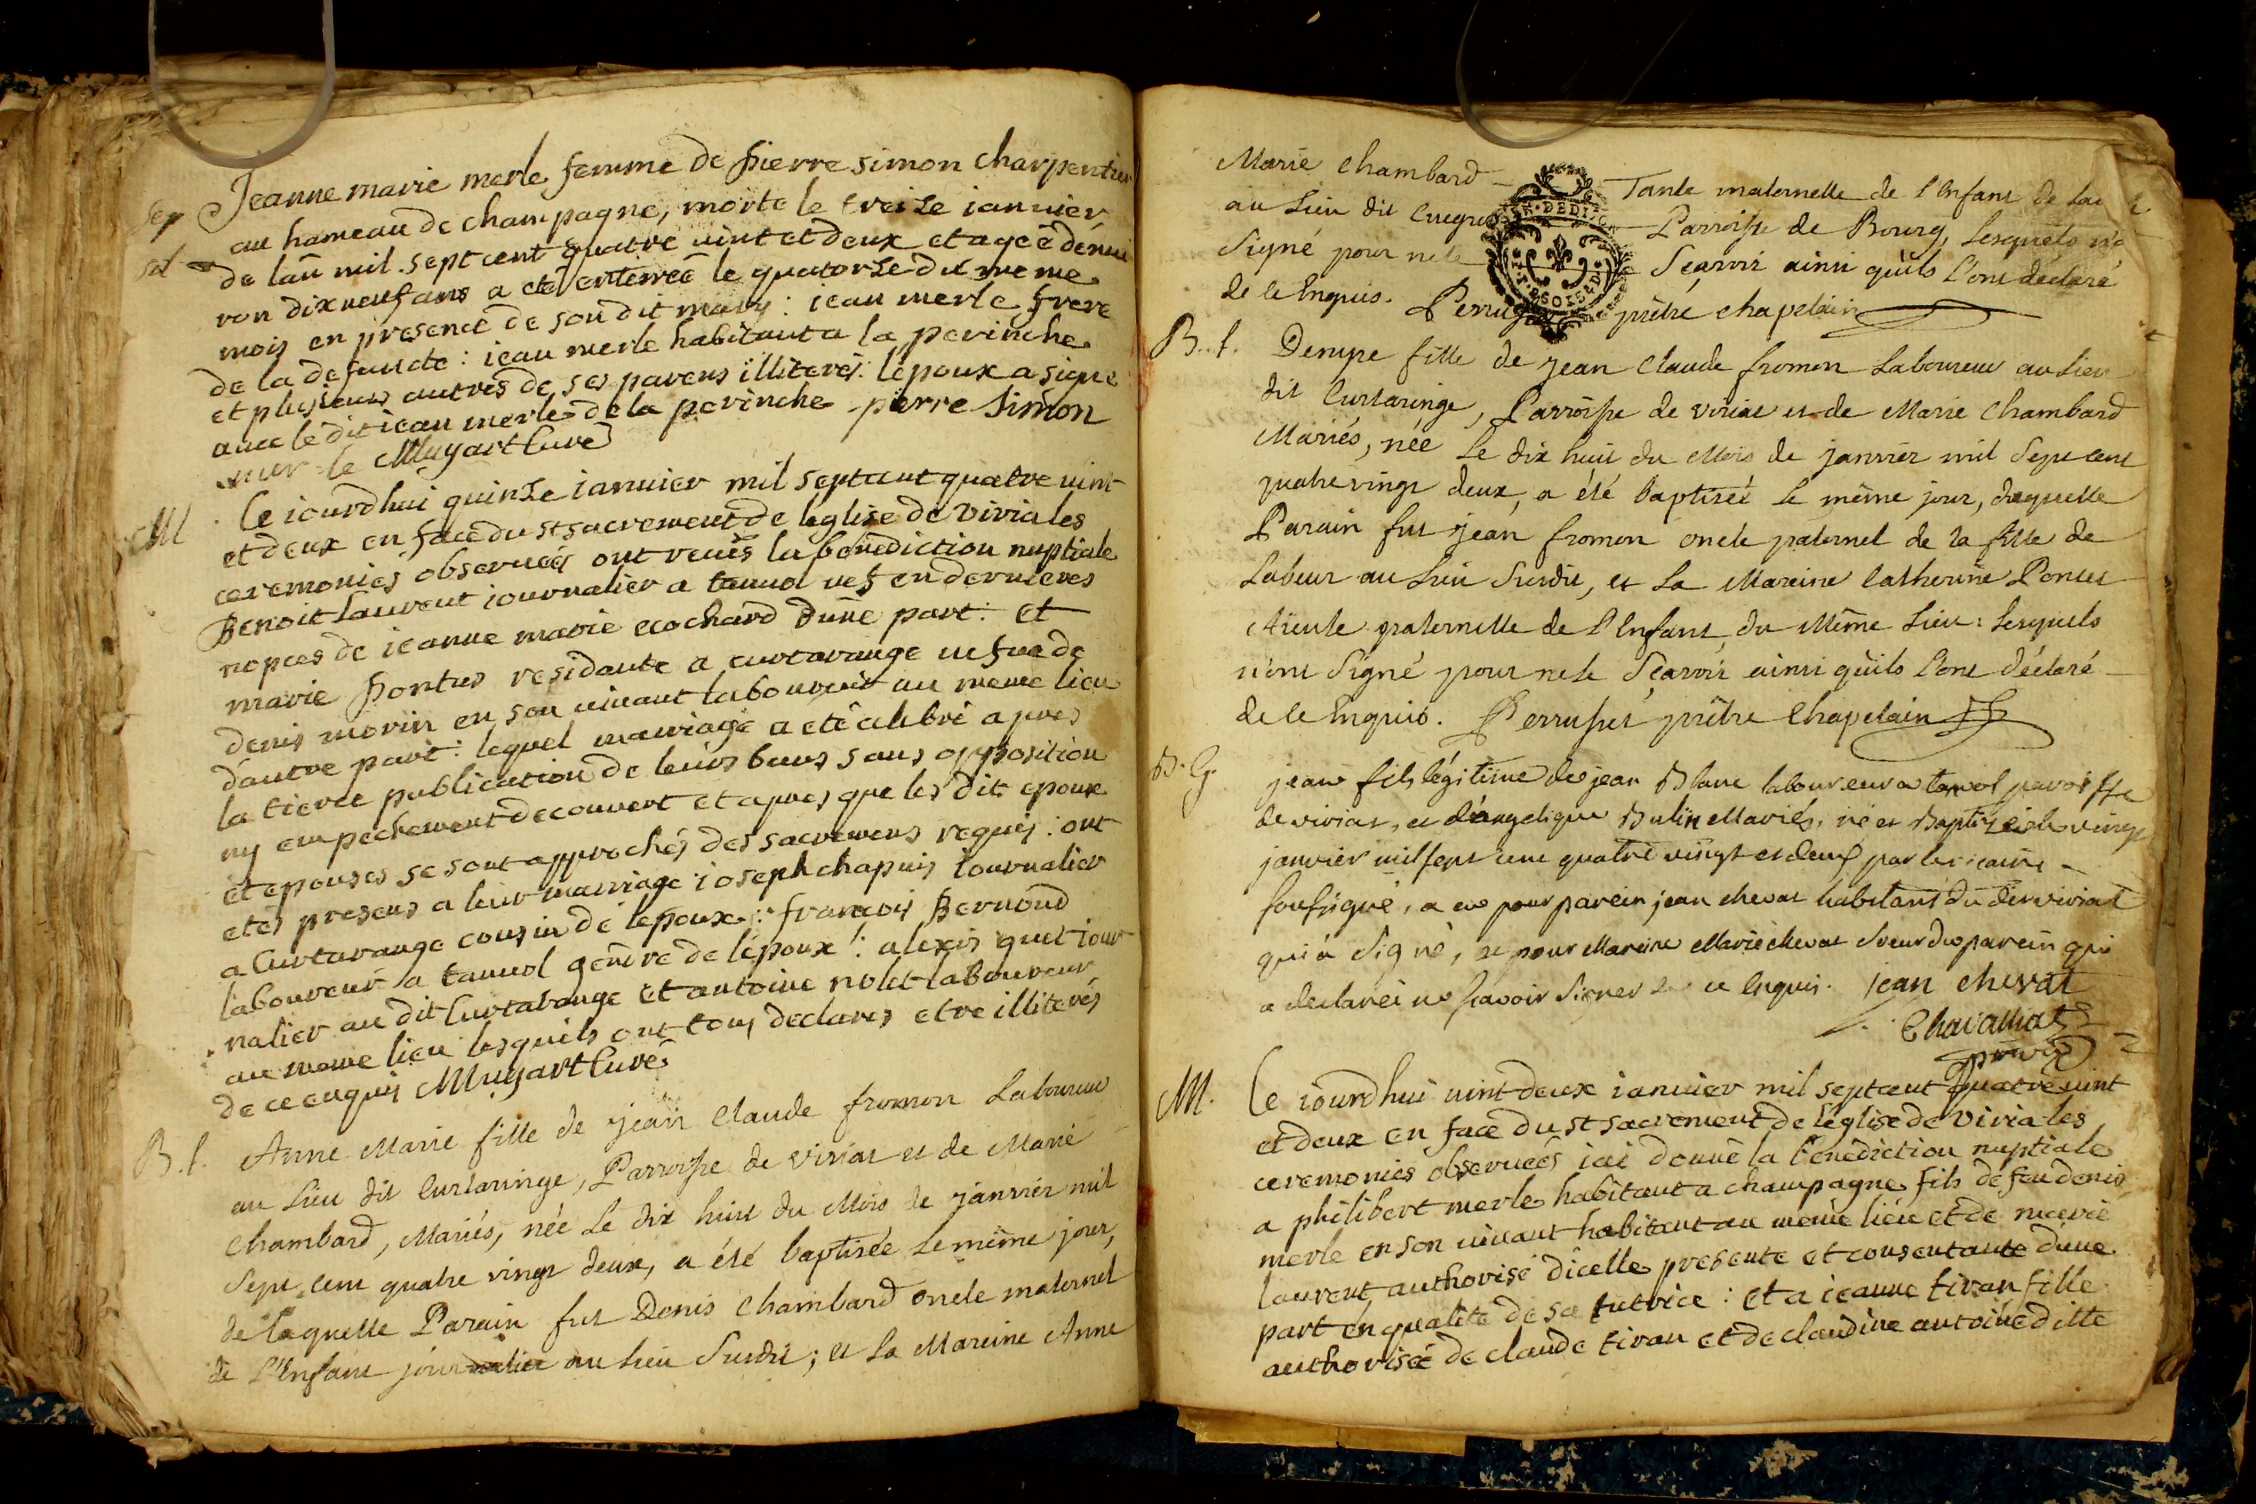 Sep Jeanne marie merle femme de pierre simon charpentier
sol au hameau de champagne, morte le treize ianvier
de lan mil sept cent quatre uint et deux et agée denui
ron dix neuf ans a eté enterreé le quatorze du meme
mois en presence de sou dit mary : iean merle frere
de la defuncte : iean merle habitant a la perinche
et plusieurs autres de ses parens illiterés lepoux a signé
auec le dit iean merle de la perinche pierre simon
merle Muyart Curé
M Ce iourdhui quinze ianuier mil sept cent quatre uint
et deux en face du st sacrement de leglise de viria les
ceremonies obseruées ont receues la benediction nuptiale
Benoit Laurent iournalier a tanuol uef en dernieres
nopces de ieanne marie ecochard dune part : et
marie pontus residante a curtarange uefue de
denis morin en son uiuant laboureur au meme lieu
dautre part : lequel mariage a eté celebré apres
la tierce publication de leurs bans sans opposition
ny empechement decouvert et apres que les dits epoux
et epouses se sont approchés des sacremens requis : ont
etés presens a leur mariage ioseph chapuis iournalier
a Curtarange cousin de lepoux : francois Bernoud
laboureur a tanuol gendre de lepoux : alexis guet iour
nalier au dit Curtarange et antoine nolet laboureur
au meme lieu lesquels ont tous declarés etre illiterés
de ce enquis Muyart Curé
B. f. Anne Marie fille de jean Claude fromon Laboureur
au Lieu dit Curtaringe, Parroisse de viriat et de Marie
Chambard, Mariés, née Le dix huit du Mois de janvier mil
Sept cent quatre vingt deux, a été baptisée Le même jour,
de laquelle Parain fut Denis Chambard oncle maternel
de l'Enfant journalier au Lieu Susdit; et La Mareine Anne
Marie Chambard Tante maternelle de l'Enfant de La
au Lieu dit Parroisse de Bourg, Lesquels n'o
Signé pour ne le Sçavoir ainsi qu'ils l'ont déclaré
de ce Enquis. prêtre chapelain
B. f. Denyse fille de jean Claude fromon Laboureur au Lieu
dit Curtaringe, Parroisse de viriat et de Marie Chambard
Mariés, née Le dix huit du Mois de janvier mil Sept cent
quatre vingt deux, a été baptisée Le même jour, de laquelle
Parain fut jean fromon oncle paternel de la fille de
Labeur au Lieu Susdit, et La Mareine Catherine Pontet
Aieule paternelle de l'Enfant du Même Lieu : Lesquels
n'ont Signé pour ne le Sçavoir ainsi qu'ils l'ont déclaré
de ce Enquis. prêtre Chapelain
B. G. jean fils légitime de jean Blanc laboureur a tanvol paroisse
de viriat, et d'angelique Bulin Mariés, né et Baptizé le vingt
janvier mil sept cent quatre vingt et deux par le vicaire
soussigné, a eu pour parein jean chevat habitant du viriat
qui a Signé, et pour Mareine Marie chevat Soeur du parein qui
a declareé ne scavoir Signer de ce Enquis. jean chevat
M. Ce iourdhui uint deux ianuier mil sept cent quatre uint
et deux en face du st sacrement de leglise de viria les
ceremonies obseruées iai donné la benediction nuptiale
a philibert merle habitant a champagne fils de feu denis
merle en son uiuant habitant au meme lieu et de marie
laurent authorisé dicelle presente et consentante dune
part en qualité de sa tutrice : et a ieanne tiran fille
authorisée de claude tiran et de claudine antoine ditte